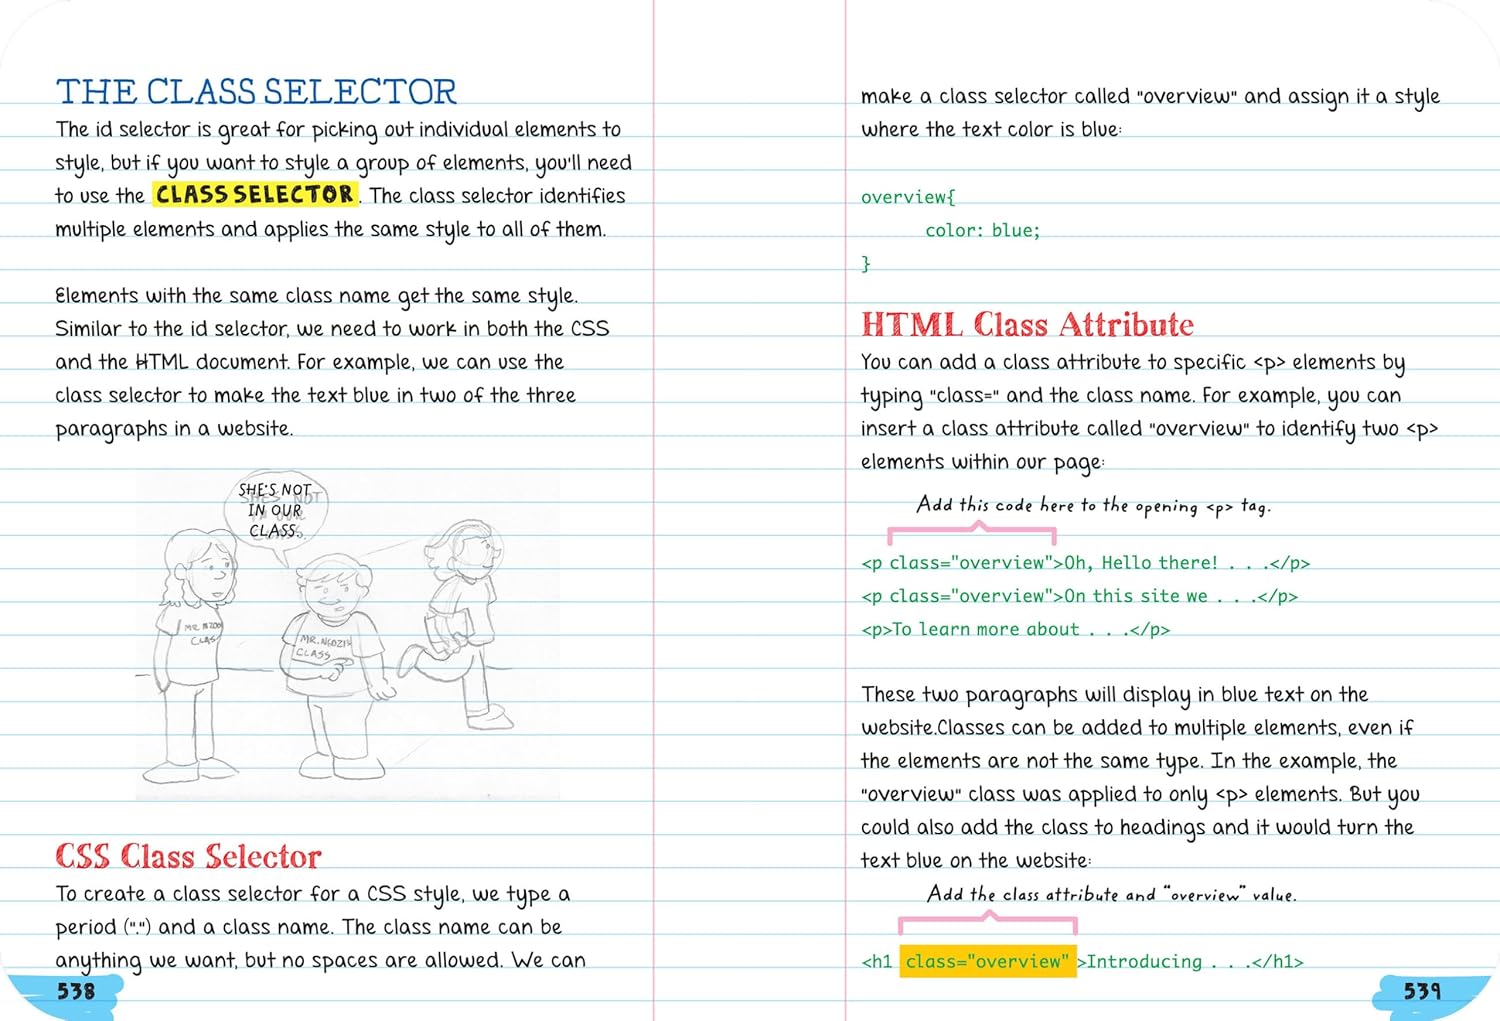 THE CLASS SELECTOR
The id selector is great for picking out individual elements to
style, but if you want to style a group of elements, you'll need
to use the CLASS SELECTOR. The class selector identifies
multiple elements and applies the same style to all of them.
Elements with the same class name get the same style.
Similar to the id selector, we need to work in both the CSS
and the HTML document. For example, we can use the
class selector to make the text blue in two of the three
paragraphs in a website.
SHE'S NOT
IN OUR
CLASS.
MR.
CLAS
MR. NGOZI'S
CLASS
CSS Class Selector
To create a class selector for a CSS style, we type a
period (".") and a class name. The class name can be
anything we want, but no spaces are allowed. We can
538
make a class selector called "overview" and assign it a style
where the text color is blue:
overview{
color: blue;
}
HTML Class Attribute
You can add a class attribute to specific <p> elements by
typing "class=" and the class name. For example, you can
insert a class attribute called "overview" to identify two <p>
elements within our page:
Add this code here to the opening <p> tag.
<p class="overview">Oh, Hello there! . . .</p>
<p class="overview">On this site we . . .</p>
<p>To learn more about . . .</p>
These two paragraphs will display in blue text on the
website.Classes can be added to multiple elements, even if
the elements are not the same type. In the example, the
"overview" class was applied to only <p> elements. But you
could also add the class to headings and it would turn the
text blue on the website:
Add the class attribute and "overview" value.
<h1 class="overview" >Introducing . . .</h1>
539